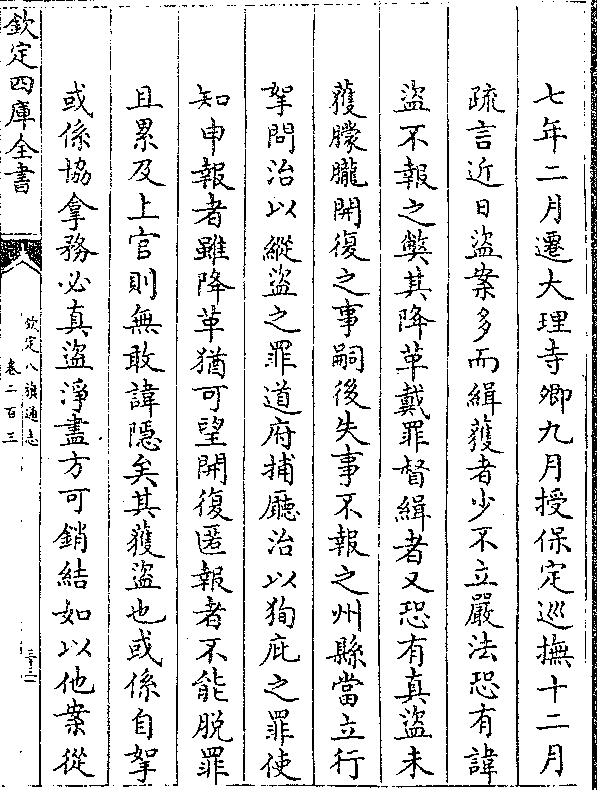 七年二月遷大理寺卿九月授保定巡撫十二月
疏言近日盜案多而緝獲者少不立嚴法恐有諱
盜不報之獘其降革戴罪督緝者又恐有真盜未
獲朦朧開復之事嗣後失事不報之州縣當立行
拏問治以縱盜之罪道府捕廳治以狥庇之罪使
知申報者雖降革猶可望開復匿報者不能脫罪
且累及上官則無敢諱隱矣其獲盜也或係自拏
或係協拿務必真盜淨盡方可銷結如以他案從
欽定四庫全書
欽定八旗通志
卷二百三
三十二